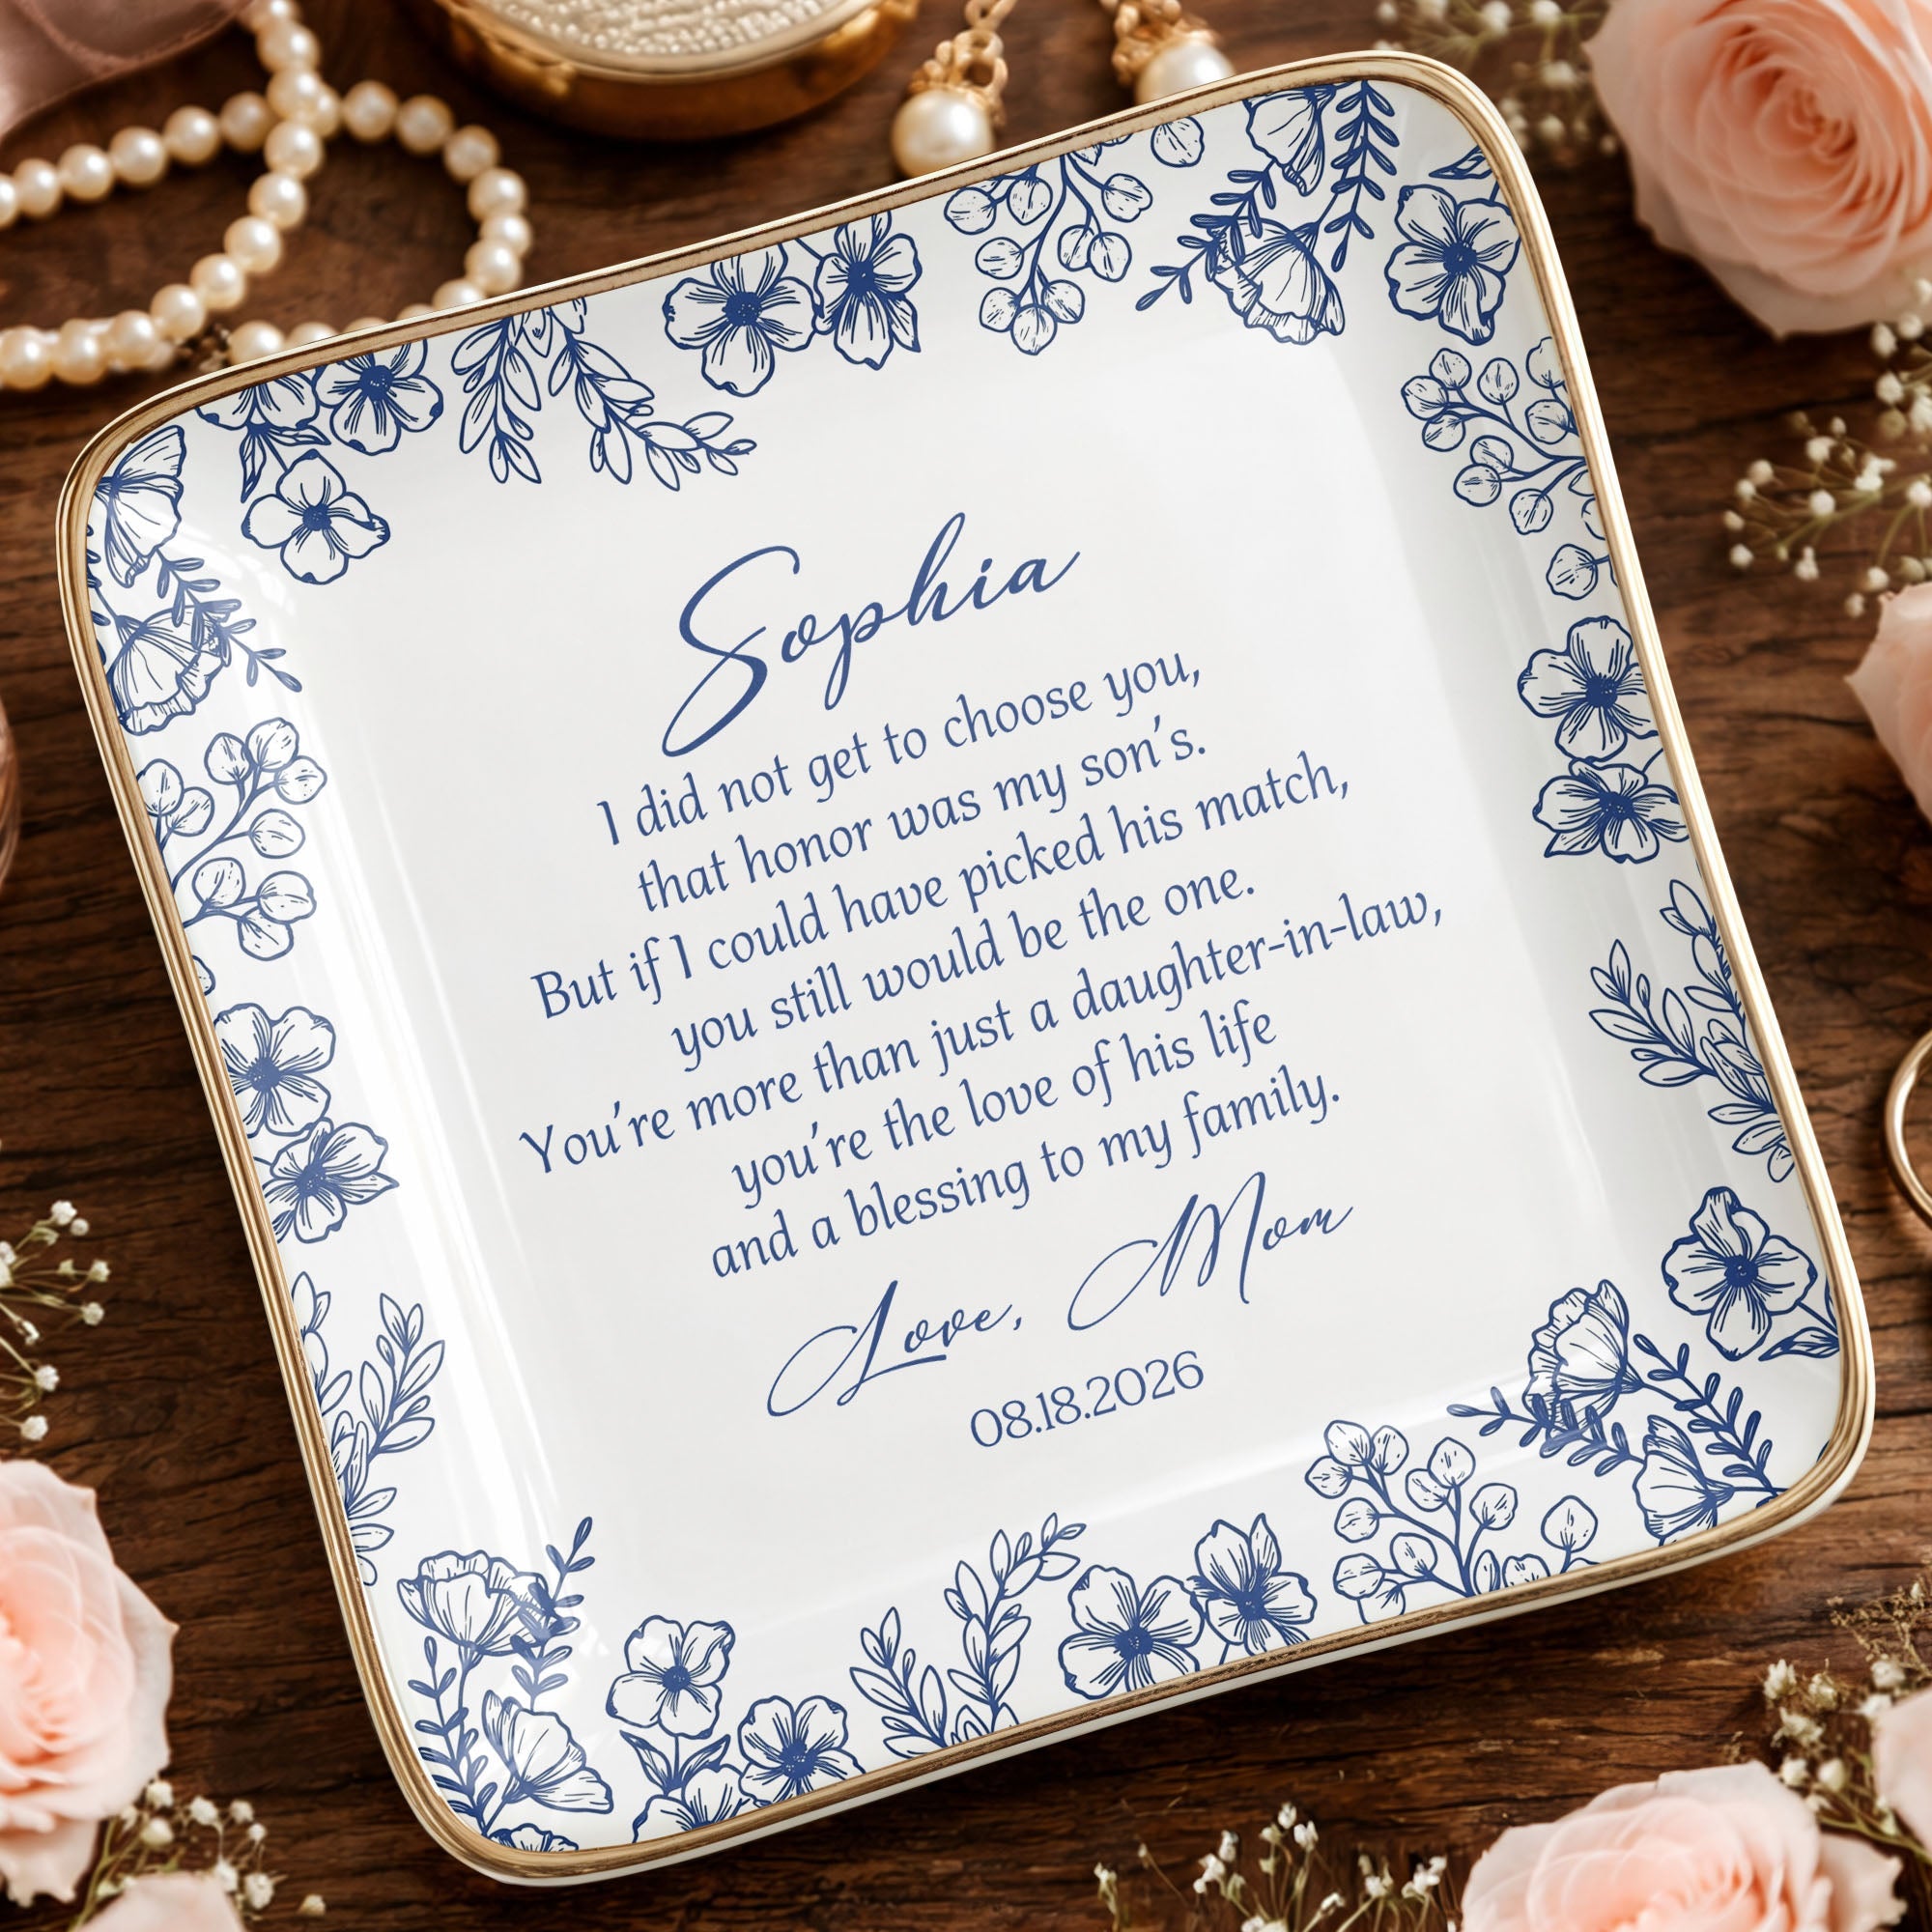 Sophia
I did not get to choose you,
that honor was my son's.
But if I could have picked his match,
you still would be the one.
You're more than just a daughter-in-law,
you're the love of his life
and a blessing to my family.
Love, Mom
08.18.2026